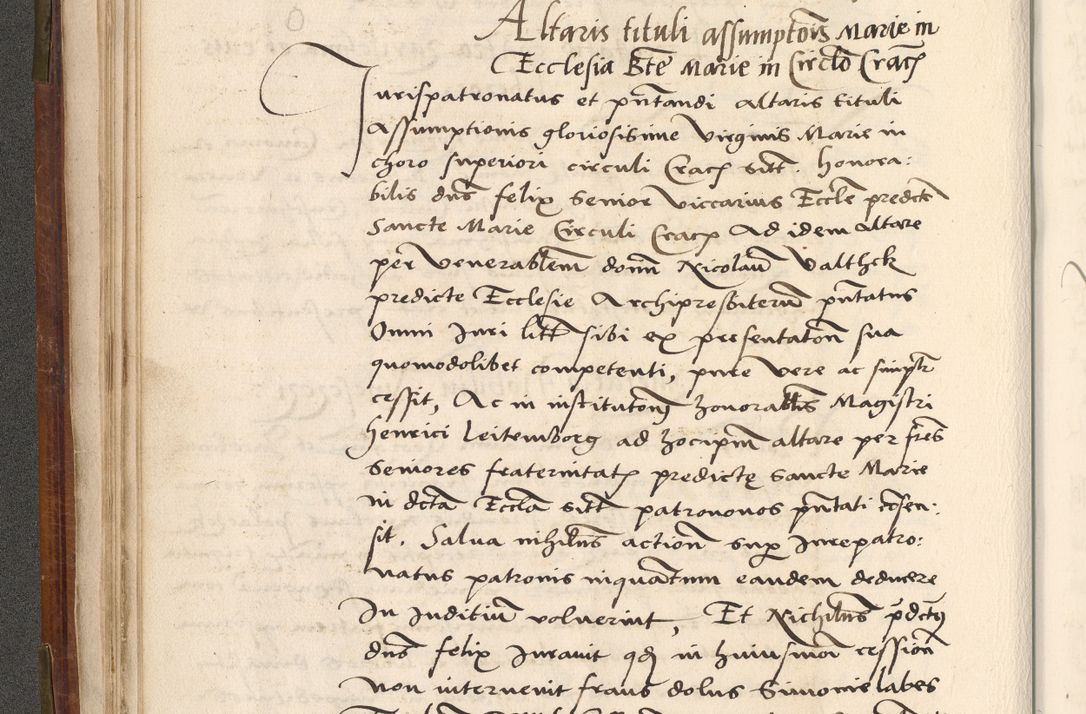 Altaris tituli assumptōis Marie in
Ecclesia Bte Marie in Circlo Crac
Jurispatronatus et pntandi altaris tituli
Assumptionis gloriosisime virginis Marie in
choro superiori circuli Crac sitt honora:
bilis dns felix senior viccarius Eccle predcte
Sancte Marie Circuli Crac Ad idem altare
per venerablem domm Nicolaum Valthck
predicte Ecclesie Archipresbiterum pntatus
Omni Juri litt sibi ex presentaton sua
quomodolibet competenti, pure vere ac simplr
cessit, Ac in institutonem honorablis Magistri
henrici Leitemborg ad hocipm altare per frēs
Seniores fraternitatis predictę sancte Marie
in dcta Eccla sitt patrononos pntati cosen:
sit. Salua nihilus action sup Jurepatro:
natus patronis inquantum eandem deducere
In Juditium voluerint, Et Nichilus pdctus
dns felix Jurauit qd in huiusmōi cession
non interuenit fraus dolus Simonie labes